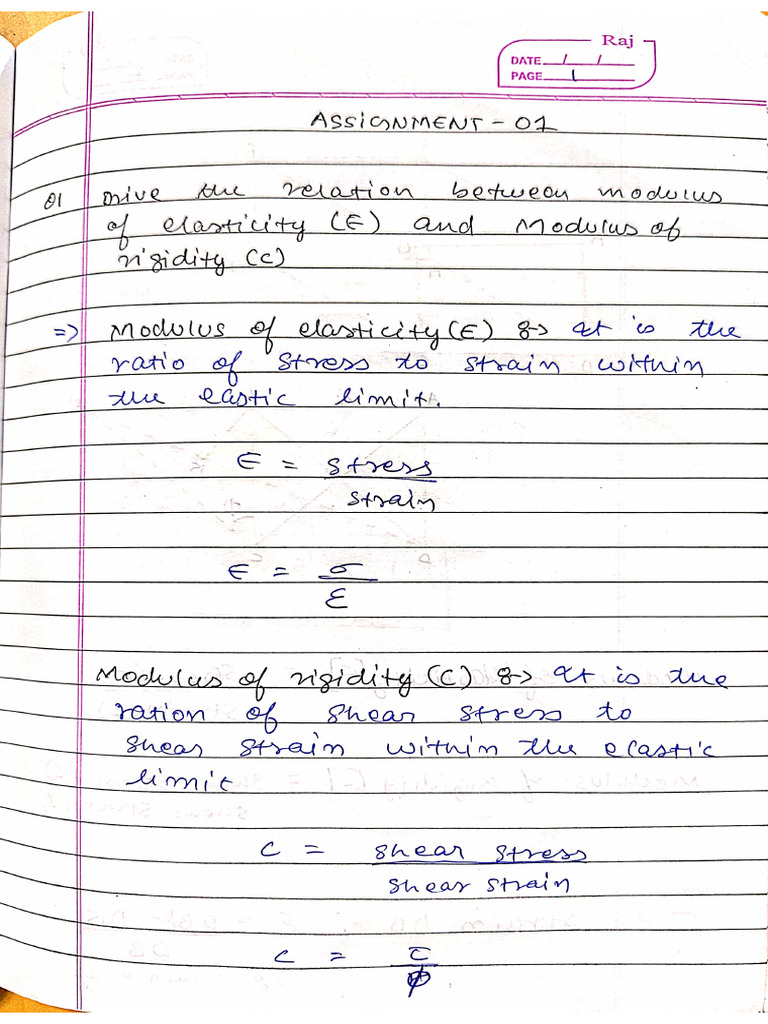 Raj
DATE / /
PAGE 1
ASSIGNMENT - 01
Q1 Drive the relation between modulus
of elasticity (E) and Modulus of
rigidity (C)
=> Modulus of elasticity (E) :-> It is the
ratio of stress to strain within
the eastic limit.
E = stress
strain
E = σ
ε
Modulus of rigidity (C) :-> It is the
ration of shear stress to
shear strain within the elastic
limit
C = shear stress
shear strain
C = τ
φ